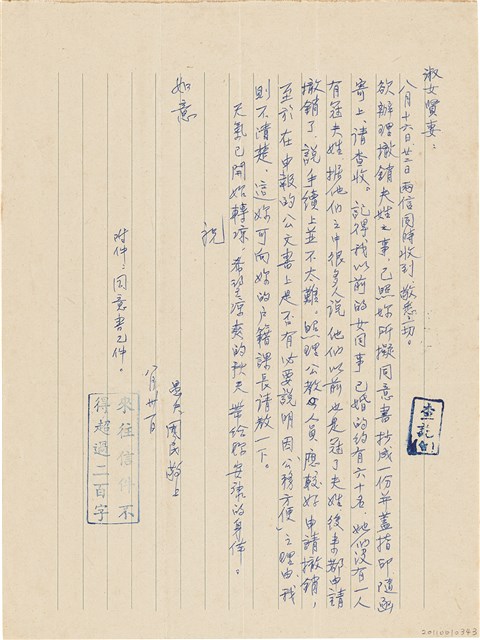 淑女賢妻：
八月十六日、廿三日兩信同時收到，敬悉一切。
欲辦理撤銷夫姓之事，已照妳所擬同意書抄成一份並蓋指印隨函
寄上，請查收。記得我以前的女同事已婚的約有六十名，她們沒有一人
有冠夫姓。據他們之中很多人說，他們以前也是冠了夫姓後來都申請
撤銷了，說手續上並不太難。照理公教人員應較好申請撤銷，
至於在申報的公文書上是否有必要說明因「公務方便」之理由，我
則不清楚，這妳可向妳的戶籍課長請教一下。
天氣已開始轉涼，希望涼爽的秋天帶給妳安康的身体。
祝
如意
愚夫 國民 敬上
八月廿一日
附件：同意書乙件。
查訖
來往信件不
得超過二百字
20110010343